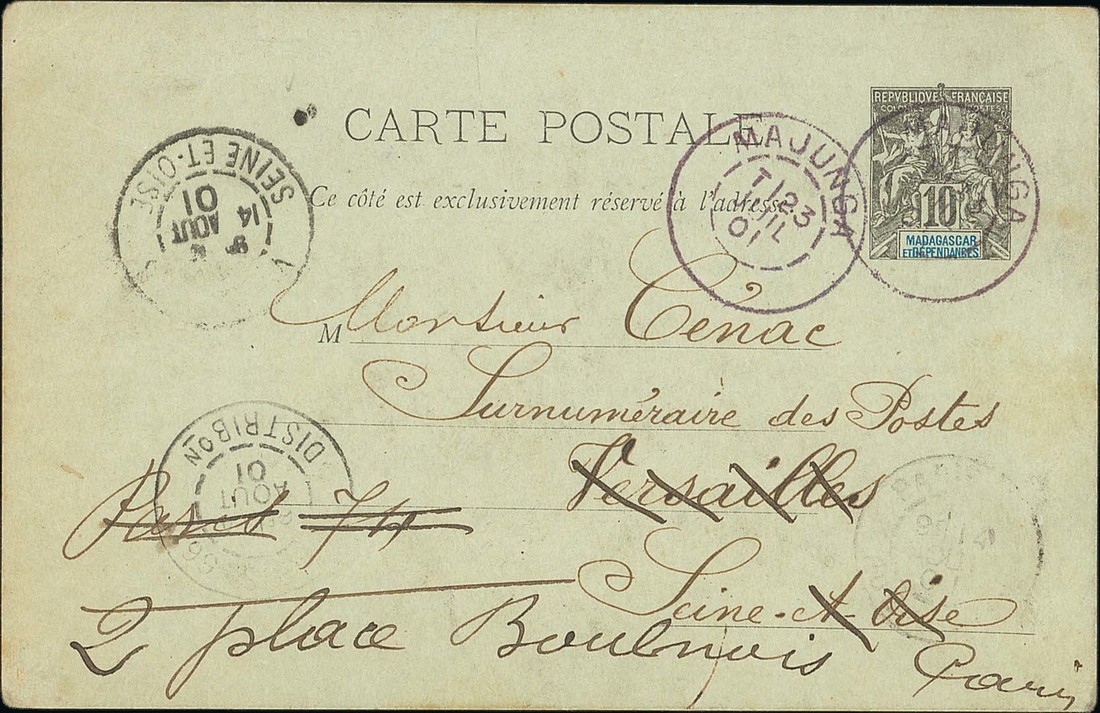 REPVBLIQVE FRANÇAISE
COLONIES POSTES
10
MADAGASCAR
ET DÉPENDANCES
CARTE POSTALE
Ce côté est exclusivement réservé à l'adresse.
MAJUNGA
23
JUIL
01
SEINE-ET-OISE
14
AOUT
01
M Monsieur Cenac
Surnuméraire des Postes
Versailles
Seine-et-Oise
Paris 74
2 place Boulnois Paris
DISTRIBON
AOUT
01